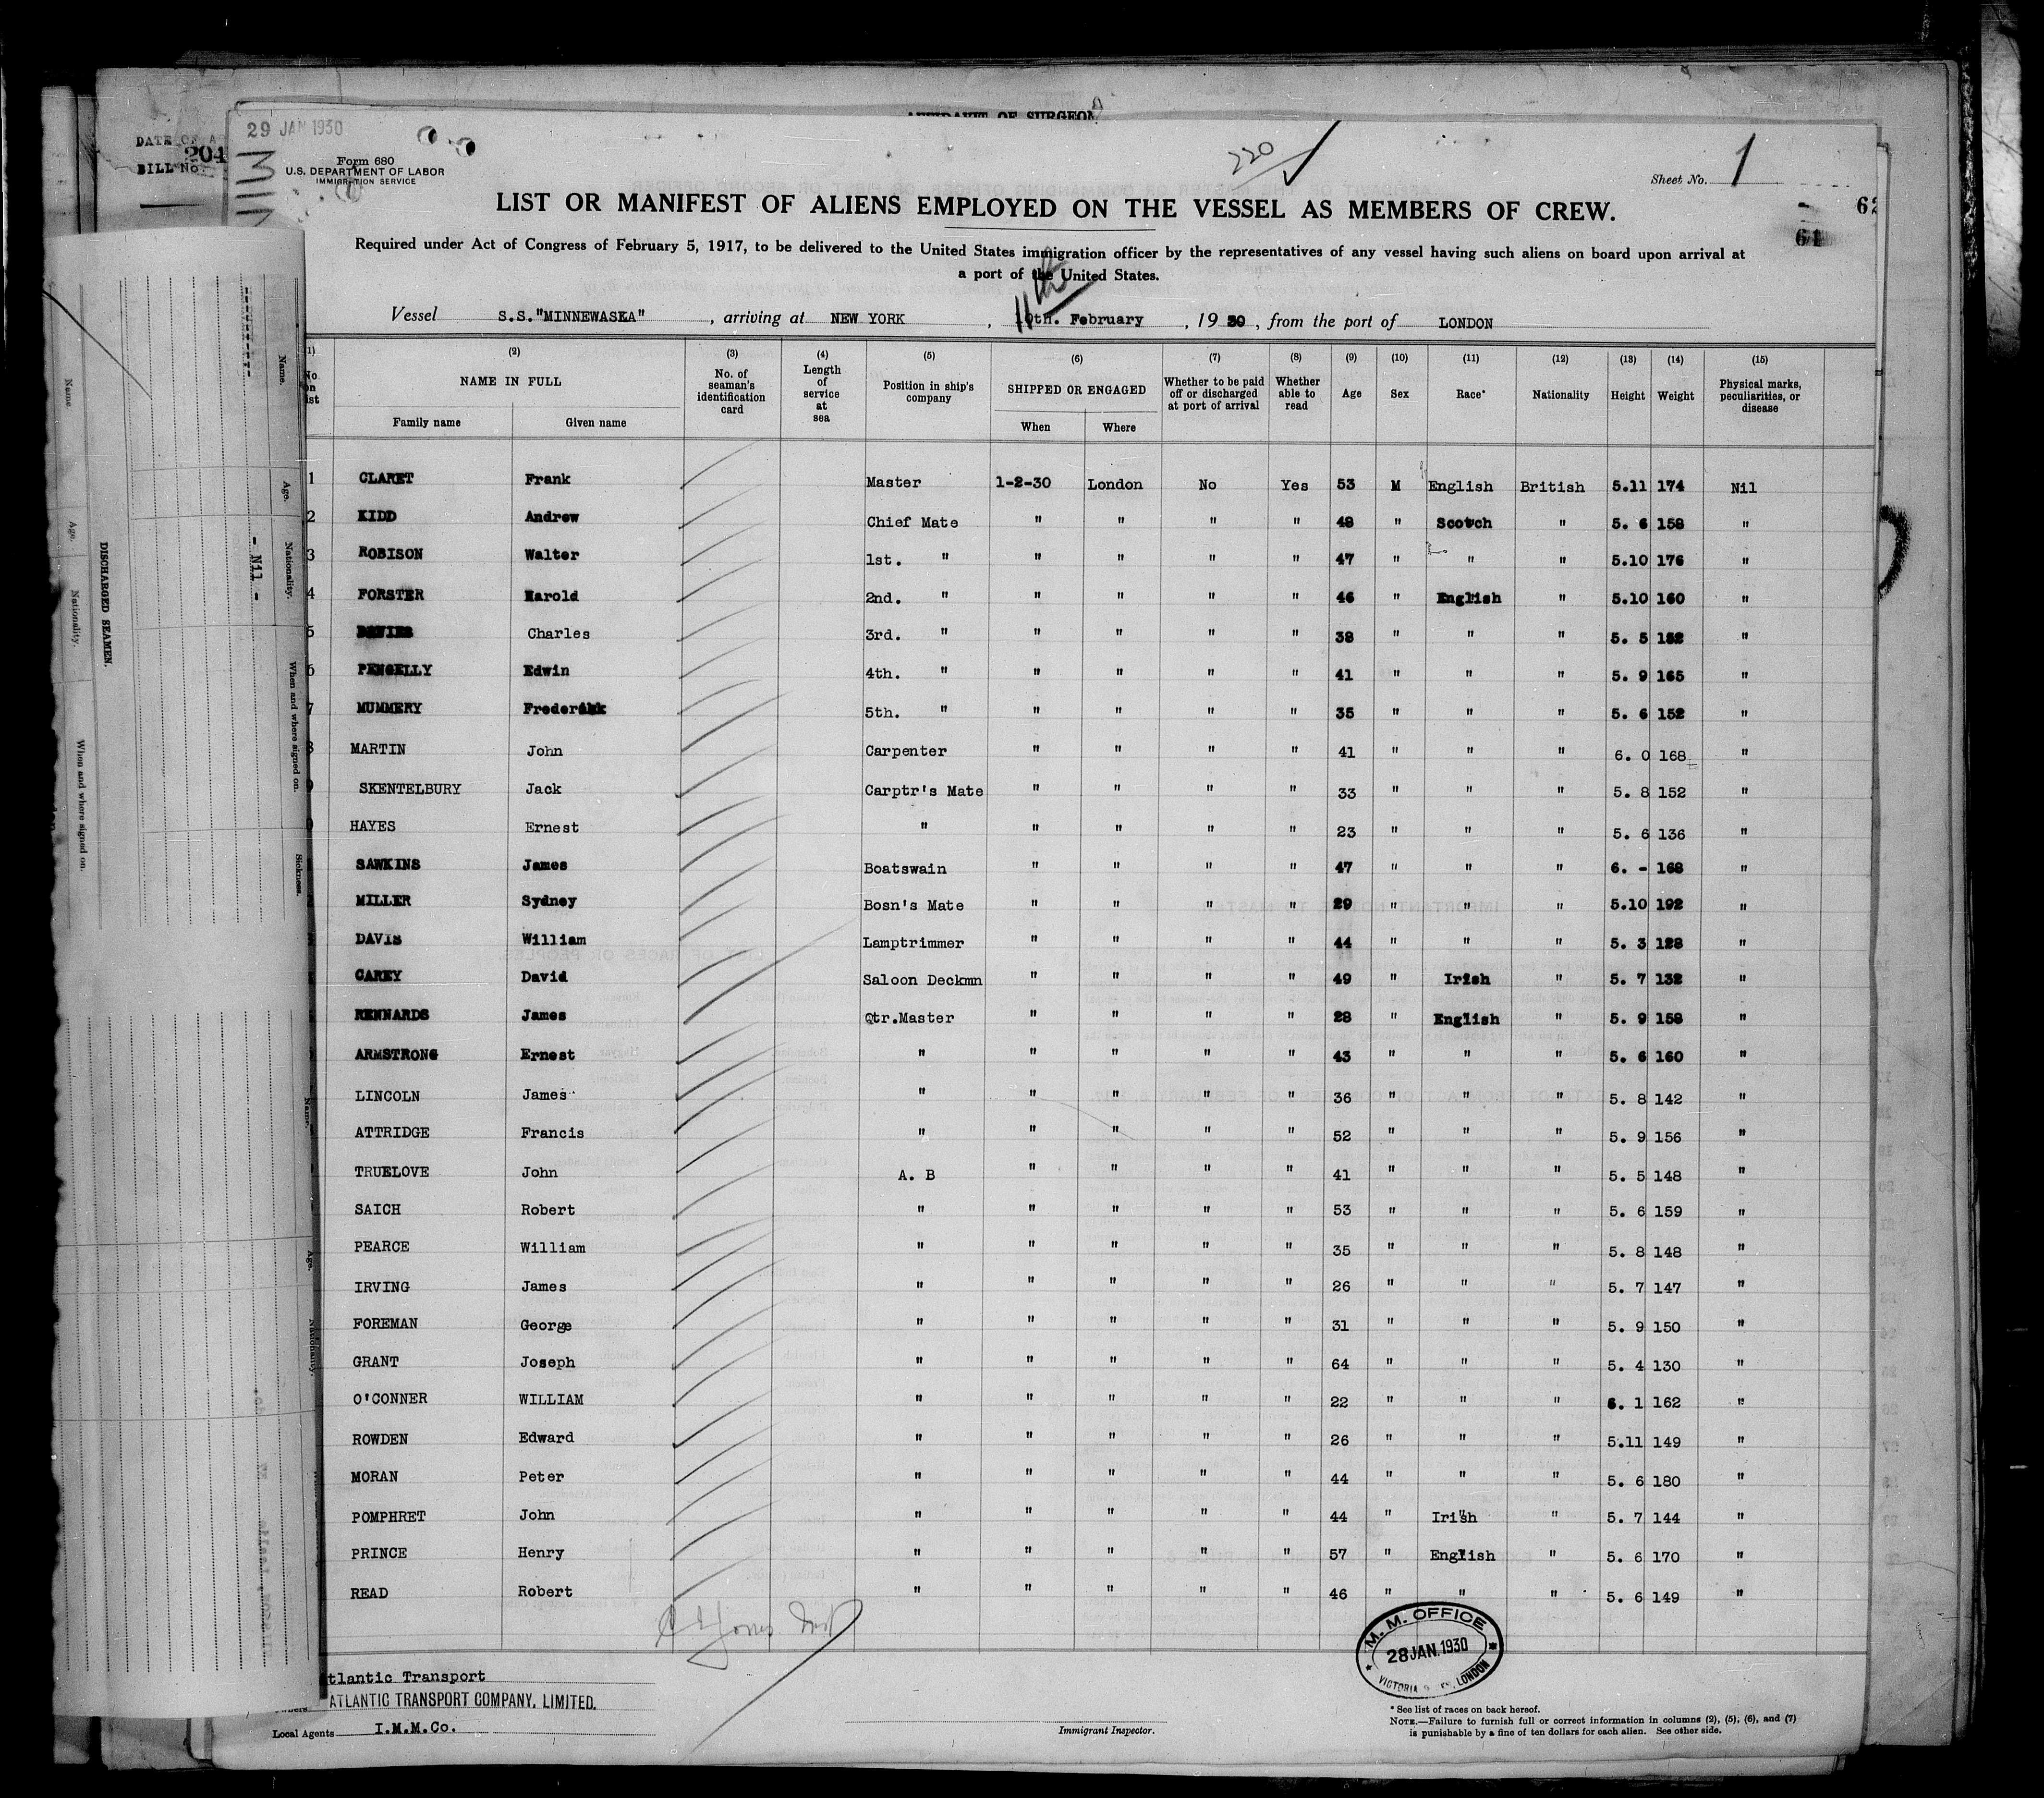 AFFIDAVIT OF SURGEON
29 JAN 1930
DATE OF A
BILL No. 204
Form 680
U.S. DEPARTMENT OF LABOR
IMMIGRATION SERVICE
220
Sheet No. 1
62
61
LIST OR MANIFEST OF ALIENS EMPLOYED ON THE VESSEL AS MEMBERS OF CREW.
Required under Act of Congress of February 5, 1917, to be delivered to the United States immigration officer by the representatives of any vessel having such aliens on board upon arrival at
a port of the United States.
11th
Vessel S.S."MINNEWASKA", arriving at NEW YORK, 10th. February, 1930, from the port of LONDON
(1) (2) (3) (4) (5) (6) (7) (8) (9) (10) (11) (12) (13) (14) (15)
No. on list NAME IN FULL No. of seaman's identification card Length of service at sea Position in ship's company SHIPPED OR ENGAGED Whether to be paid off or discharged at port of arrival Whether able to read Age Sex Race* Nationality Height Weight Physical marks, peculiarities, or disease
Family name Given name When Where
1 CLARET Frank Master 1-2-30 London No Yes 53 M English British 5.11 174 Nil
2 KIDD Andrew Chief Mate " " " " 48 " Scotch " 5. 6 158 "
3 ROBISON Walter 1st. " " " " " 47 " " " 5.10 176 "
4 FORSTER Harold 2nd. " " " " " 46 " English " 5.10 160 "
5 DAVIES Charles 3rd. " " " " " 38 " " " 5. 5 152 "
6 PENGELLY Edwin 4th. " " " " " 41 " " " 5. 9 165 "
7 MUMMERY Frederick 5th. " " " " " 35 " " " 5. 6 152 "
8 MARTIN John Carpenter " " " " 41 " " " 6. 0 168 "
9 SKENTELBURY Jack Carptr's Mate " " " " 33 " " " 5. 8 152 "
0 HAYES Ernest " " " " " 23 " " " 5. 6 136 "
SAWKINS James Boatswain " " " " 47 " " " 6. - 168 "
MILLER Sydney Bosn's Mate " " " " 29 " " " 5.10 192 "
DAVIS William Lamptrimmer " " " " 44 " " " 5. 3 128 "
CAREY David Saloon Deckmn " " " " 49 " Irish " 5. 7 132 "
RENNARDS James Qtr.Master " " " " 28 " English " 5. 9 158 "
ARMSTRONG Ernest " " " " " 43 " " " 5. 6 160 "
LINCOLN James " " " " " 36 " " " 5. 8 142 "
ATTRIDGE Francis " " " " " 52 " " " 5. 9 156 "
TRUELOVE John A. B " " " " 41 " " " 5. 5 148 "
SAICH Robert " " " " " 53 " " " 5. 6 159 "
PEARCE William " " " " " 35 " " " 5. 8 148 "
IRVING James " " " " " 26 " " " 5. 7 147 "
FOREMAN George " " " " " 31 " " " 5. 9 150 "
GRANT Joseph " " " " " 64 " " " 5. 4 130 "
O'CONNER WILLIAM " " " " " 22 " " " 6. 1 162 "
ROWDEN Edward " " " " " 26 " " " 5.11 149 "
MORAN Peter " " " " " 44 " " " 5. 6 180 "
POMPHRET John " " " " " 44 " Irish " 5. 7 144 "
PRINCE Henry " " " " " 57 " English " 5. 6 170 "
READ Robert " " " " " 46 " " " 5. 6 149 "
M. M. OFFICE
28 JAN. 1930
VICTORIA LONDON
tlantic Transport
Owners ATLANTIC TRANSPORT COMPANY, LIMITED.
Local Agents I.M.M.Co.
Immigrant Inspector.
* See list of races on back hereof.
NOTE.—Failure to furnish full or correct information in columns (2), (5), (6), and (7)
is punishable by a fine of ten dollars for each alien. See other side.
DISCHARGED SEAMEN.
Name Age. Nationality. When and where signed on.
Name. Age. Nationality. When and where signed on. Sickness.
- Nil -
Name. Age. Nationality.